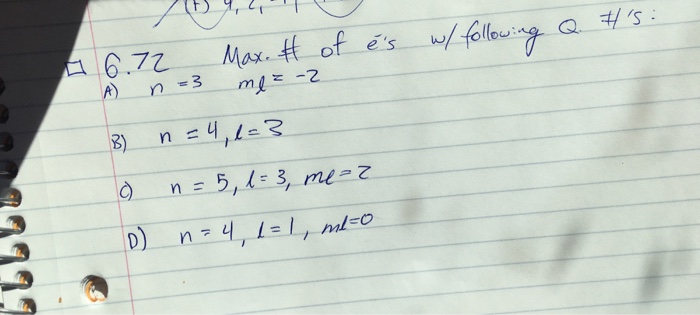 6.72 Max. # of e's w/ following Q. #'s:
A) n = 3 ml = -2
B) n = 4, l = 3
C) n = 5, l = 3, ml = 2
D) n = 4, l = 1, ml = 0